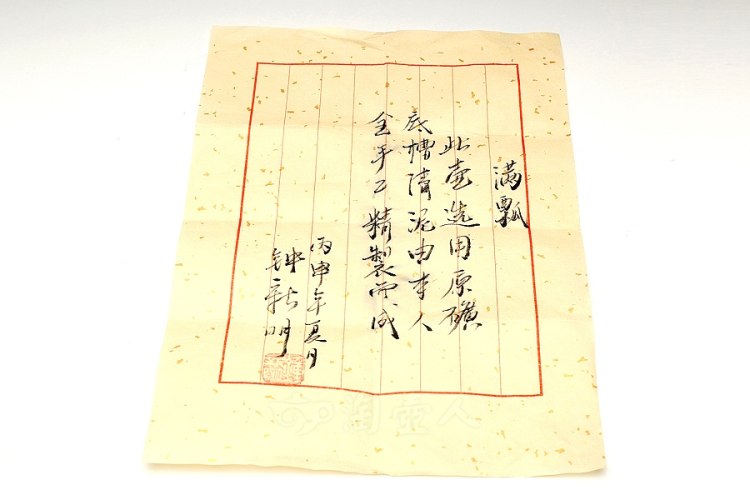 满瓢
此壶选用原礦
底槽清泥由本人
全手工精製而成
丙申年夏月
钟新明
陶壶人